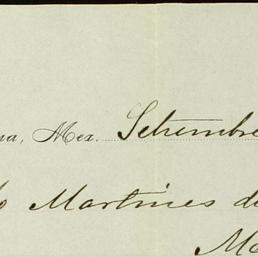 na, Mex. Setiembre
o Martines de
Mo